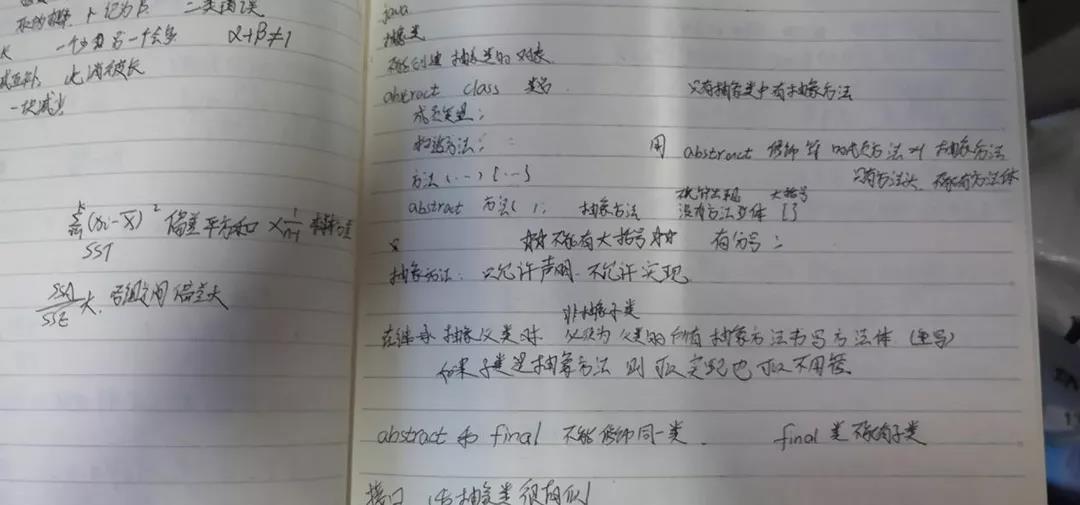 记为β. 二类错误
一个少 另一个会多 α+β≠1
此消彼长
一块减少
Σ(xi-x̄)² 偏差平方和 × 1/(n-1)
SST
SSA/SSE 大, 各组之间偏差大
java
抽象类
不能创建 抽象类的对象
abstract class 类名 只有抽象类中有抽象方法
成员变量;
构造方法;
用 abstract 修饰 的方法叫 抽象方法
方法(…){…} 只有方法头, 不能有方法体
大括号
abstract 方法( ); 抽象方法 没有方法主体 { }
☆☆不能有大括号☆☆ 有分号;
抽象方法: 只允许声明. 不允许实现
非抽象子类
在继承 抽象父类时 必须为 父类的所有 抽象方法书写方法体 (重写)
如果子类是抽象方法 则可以实现也可以不用管.
abstract 和 final 不能修饰同一类. final 类 不能有子类
接口 与抽象类很相似